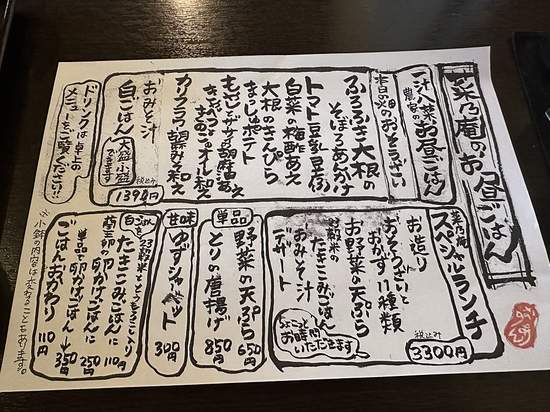 菜乃庵のお昼ごはん
一汁八菜お昼ごはん
本日の八菜のおそうざい
ふろふき大根の
そぼろあんかけ
トマト豆乳豆腐
白菜の梅酢あえ
大根のきんぴら
まっしゅポテト
カリフラワー胡麻みそ和え
おみそ汁
白ごはん
大盛小盛
できます
税込み
1390円
ドリンクは卓上の
メニューをご覧ください!!
菜乃庵
スペシャルランチ
お造り
おそうざいと
おかず11種類
お野菜の天ぷら
野穀米の
たきこみごはん
おみそ汁
デザート
ちょこっと
お時間
いただきます
税込み
3300円
単品
野菜の天ぷら 650円
とりの唐揚げ 850円
甘味
ゆずシャーベット
300円
白ごはんを
たきこみごはんに 110円
蘭王卵の卵かけごはんに 250円
単品で卵かけごはん→350円
ごはんおかわり 110円
※小鉢の内容は変わることもあります。